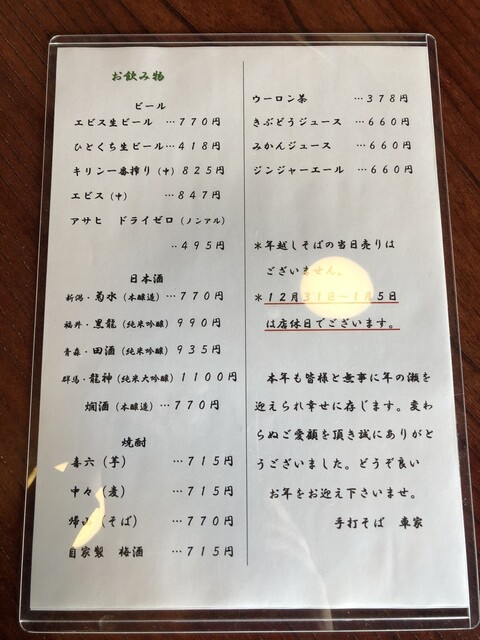 お飲み物
ビール
エビス生ビール …770円
ひとくち生ビール…418円
キリン一番搾り(中) 825円
エビス(中) …847円
アサヒ ドライゼロ(ノンアル)
‥495円
日本酒
新潟・菊水(本醸造)…770円
福井・黒龍(純米吟醸) 990円
青森・田酒(純米吟醸) 935円
群馬・龍神(純米大吟醸) 1100円
燗酒(本醸造) …770円
焼酎
喜六(芋) …715円
中々(麦) …715円
帰山(そば) …770円
自家製 梅酒 …715円
ウーロン茶 …378円
きぶどうジュース …660円
みかんジュース …660円
ジンジャーエール …660円
*年越しそばの当日売りは
ございません。
*12月31日~1月5日
は店休日でございます。
本年も皆様と無事に年の瀬を
迎えられ幸せに存じます。変わ
らぬご愛顧を頂き誠にありがと
うございました。どうぞ良い
お年をお迎え下さいませ。
手打そば 車家